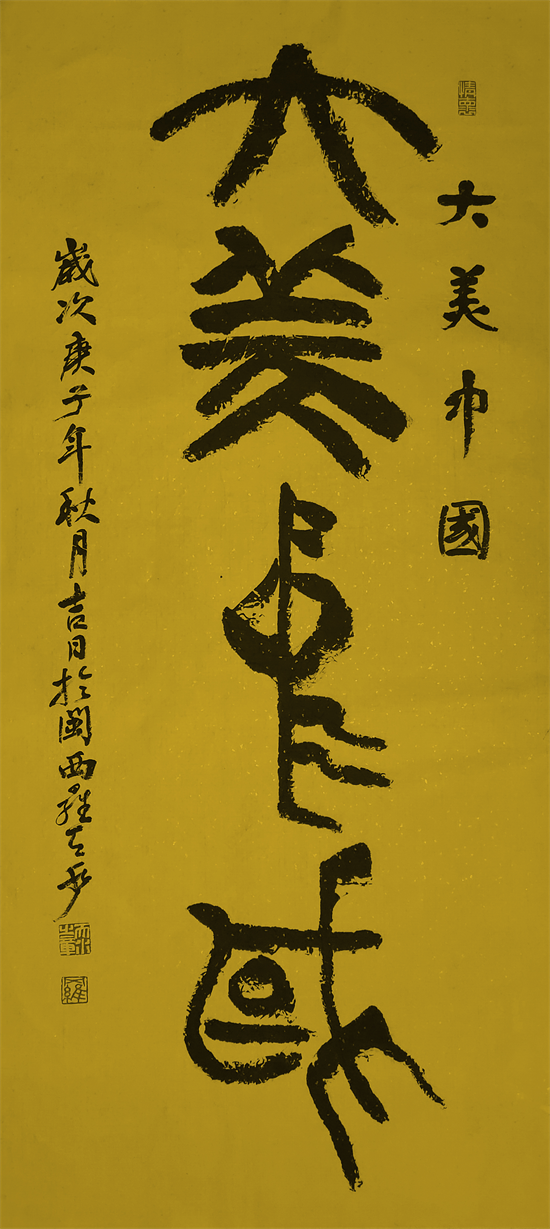 大美中國
大美中國
歲次庚子年秋月吉日於閩西羅